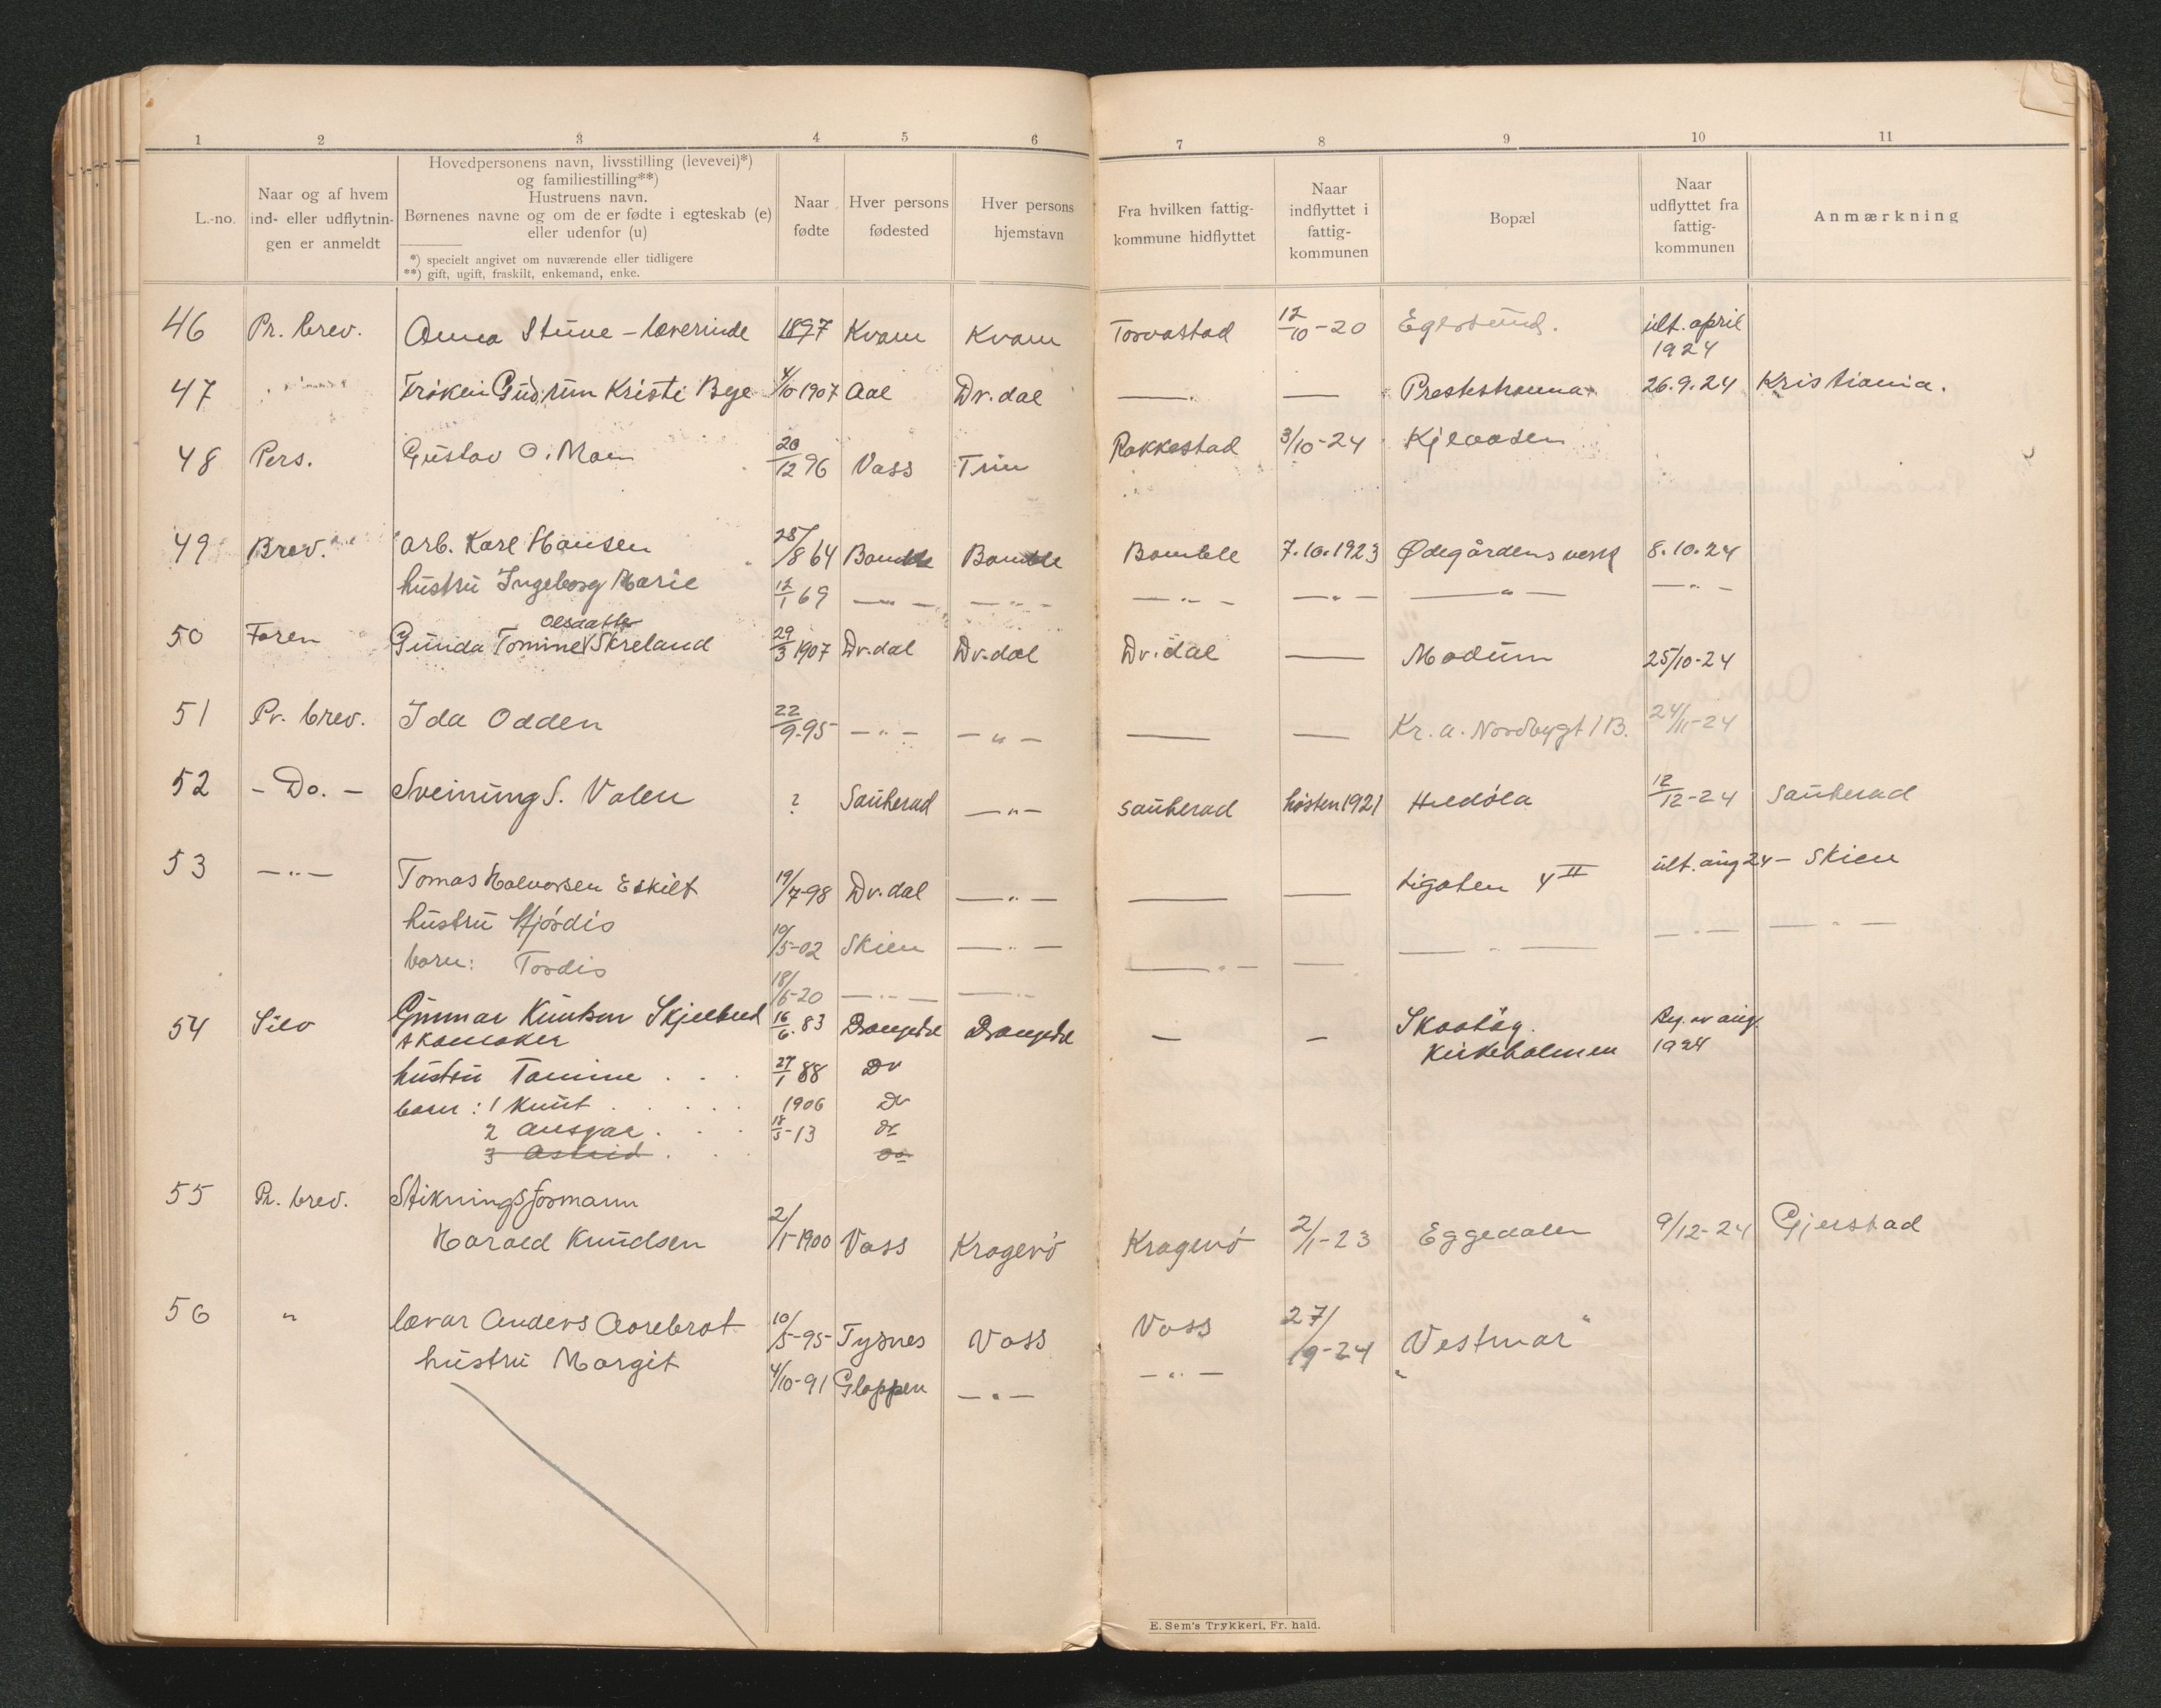 1 2 3 4 5 6 7 8 9 10 11
L.-no.
Naar og af hvem
ind- eller udflytnin-
gen er anmeldt
Hovedpersonens navn, livsstilling (levevei)*)
og familiestilling**)
Hustruens navn.
Børnenes navne og om de er fødte i egteskab (e)
eller udenfor (u)
*) specielt angivet om nuværende eller tidligere
**) gift, ugift, fraskilt, enkemand, enke.
Naar
fødte
Hver persons
fødested
Hver persons
hjemstavn
Fra hvilken fattig-
kommune hidflyttet
Naar
indflyttet i
fattig-
kommunen
Bopæl
Naar
udflyttet fra
fattig-
kommunen
Anmærkning
46 Pr. brev. Anna Stune - lærerinde 1897 Kvam Kvam Torvastad 12/10-20 Egersund. ult. april
1924
47 Frøken Gudrun Kristi Bye 4/10 1907 Aal Dr.dal — — 26.9.24 Kristiania.
48 Pers. Gustav O. Moen 20/12 96 Vass Trin Rakkestad 3/10-24 Kjlaasen
49 Brev. arb. Karl Hansen 25/8 64 Bamble Bamble Bamble 7.10.1923 Ødegårdens verk 8.10.24
hustru Ingeborg Marie 12/1 69 — " — — " — — " — — " — — " — — " —
Olsdatter
50 Faren Gunda Tomine Skreland 29/3 1907 Dr.dal Dr.dal Dr.dal — Modum 25/10-24
51 Pr. brev. Ida Odden 22/9-95 — " — — " — — — Kr.a. Nordbygt 1 B. 24/11-24
52 - Do. - Sveinung S. Valen ? Sauherad — " — Sauherad høsten 1921 12/12-24 Sauherad
53 — " — Tomas Halvorsen Eskilt 19/7-98 Dr.dal — " — — — Ligaten 4 II ult. aug 24 — Skien
hustru Hjørdis 19/5-02 Skien — " — — " — — " — — " —
barn: Tordis 18/6-20 — " — — " — — " — —
54 Silo Gunnar Knutsen Skjelbred 16/6.83 Drangedal Drangedal — — Skaatøy. Beg. av aug.
skomaker Kirkeholmen 1924
hustru Tomine . . 27/1 88 Dr
barn: 1 Knut . . . . . 1906 Dr
2 Ansgar . . . 18/5-13 Dr
3 Astrid . . Do
55 Pr. brev. Stikningsformann
Harald Knudsen 2/1-1900 Vass Kragerø Kragerø 2/1-23 Eggedalen 9/12-24 Gjerstad
56 " lærar Anders Aarebrot 10/5-95 Tysnes Voss Voss 27/9-24 "Vestmar"
hustru Margit 4/10-91 Gloppen — " — — " — "
E. Sem's Trykkeri, Fr. hald.